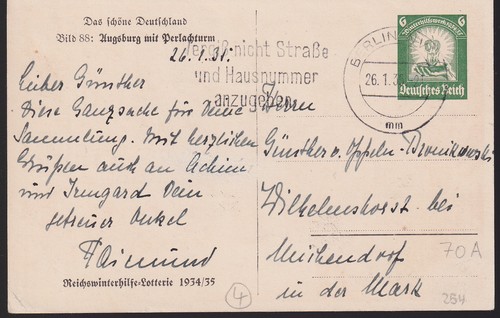 Das schöne Deutschland
Bild 88: Augsburg mit Perlachturm
26.1.37.
Vergiß nicht Straße
und Hausnummer
anzugeben
BERLIN
26.1.3
mm
6 Winterhilfswerk 6
Deutsches Reich
Lieber Günther
Diese Ganzsache für Deine
Sammlung. Mit herzlichen
Grüßen auch an Achim
und Irmgard Dein
getreuer Onkel
Raimund
Herrn
Günther v. Oppeln-Bronikowski
Wilhelmshorst bei
Michendorf
in der Mark
Reichswinterhilfe-Lotterie 1934/35
4
70A
264